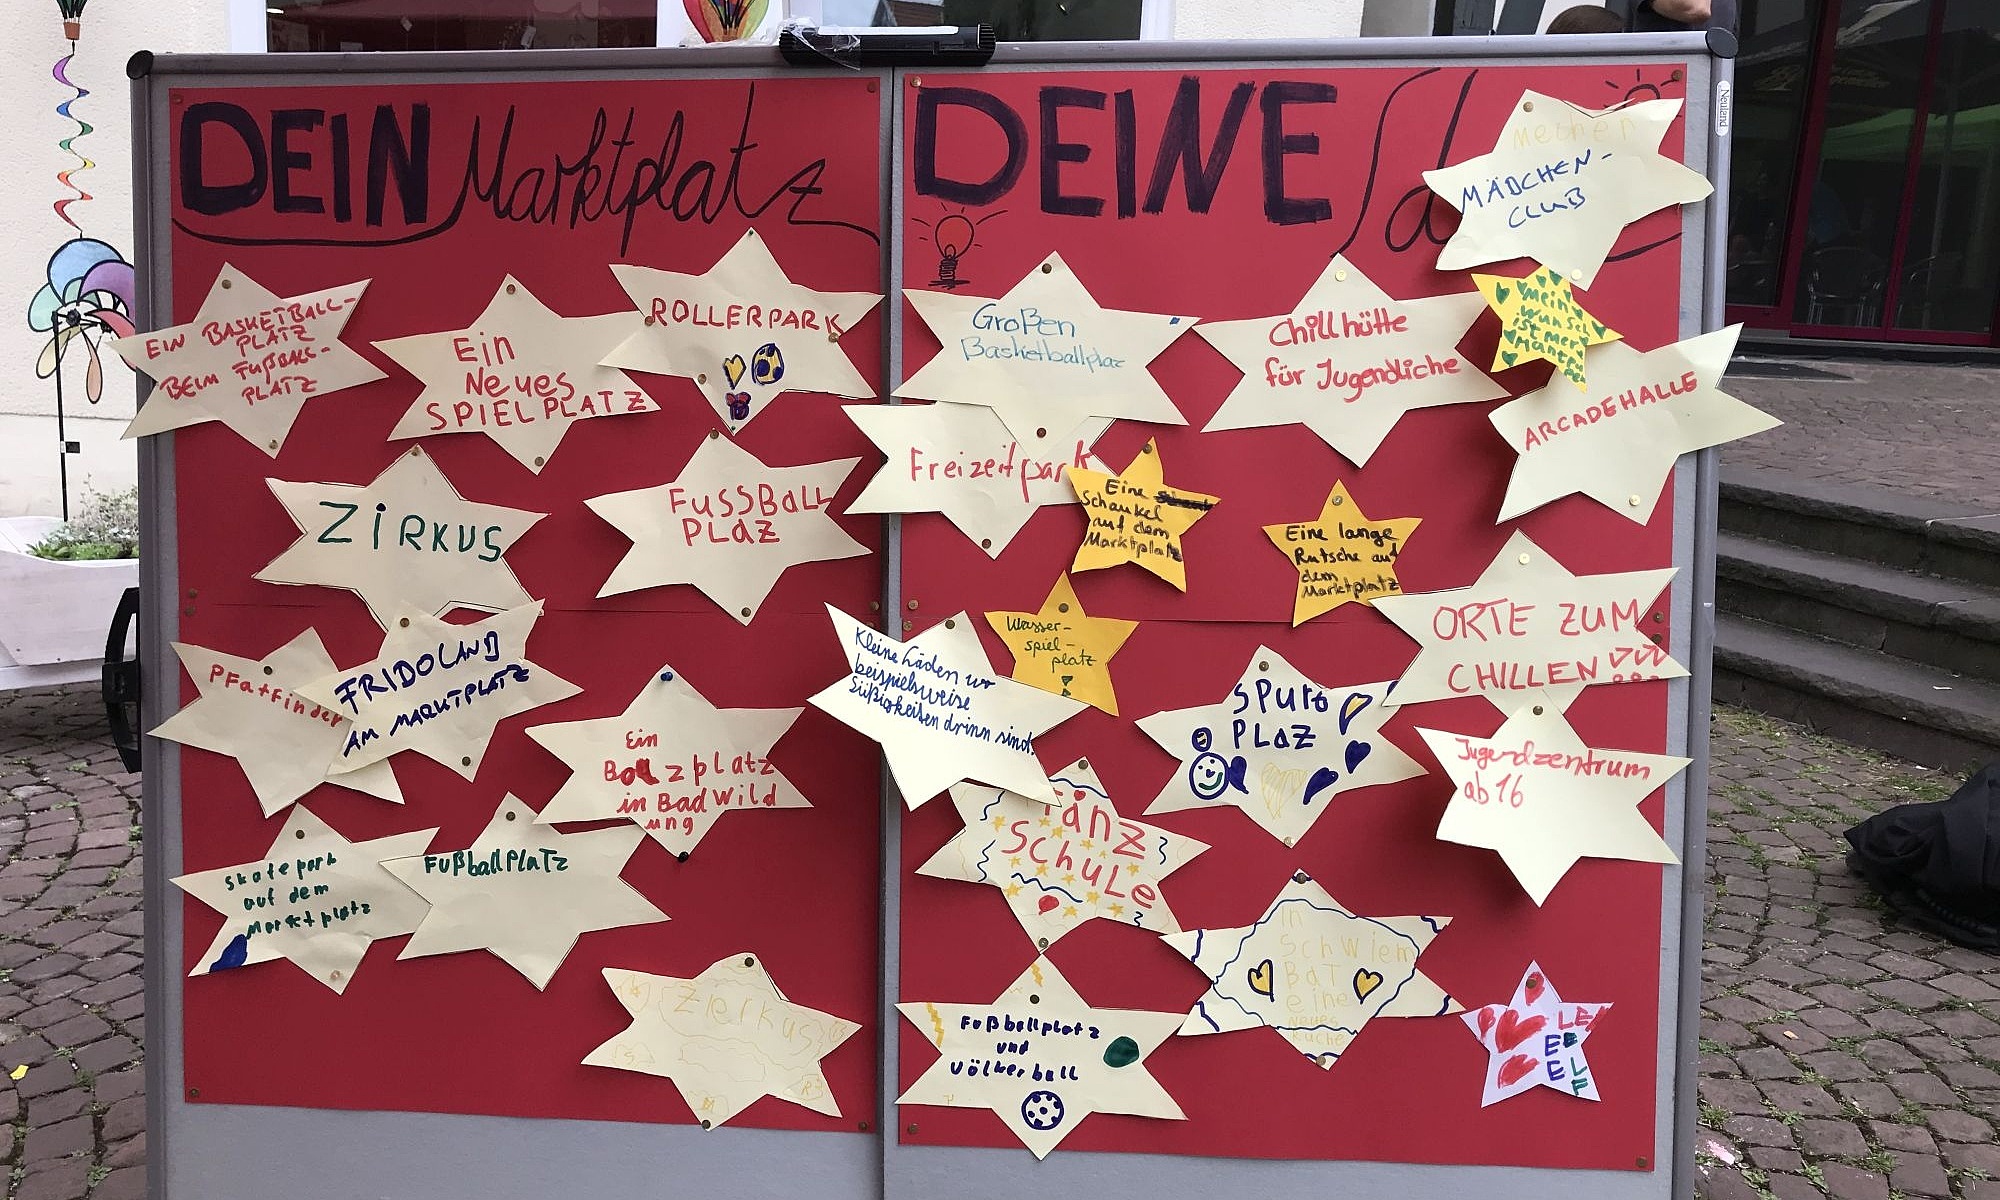 DEIN Marktplatz
DEINE
EIN BASKETBALL-
PLATZ
BEIM FUßBALL-
PLATZ
Ein
Neues
SPIELPLATZ
ROLLERPARK
ZIRKUS
FUSSBALL
PLAZ
PFatfinder
FRIDOLAND
AM MARKTPLATZ
Ein
Bolzplatz
in Bad Wild
ung
Skatepark
auf dem
Marktplatz
FußballPlaTz
Zierkus
Großen
Basketballplaz
Freizeitpark
Chillhütte
für Jugendliche
MÄDCHEN-
CLUB
mein
wunsch
ist
ARCADEHALLE
Eine
Schaukel
auf dem
Marktplatz
Eine lange
Rutsche auf
dem
Marktplatz
Wasser-
spiel-
platz
Kleine Läden wo
beispielsweise
Süßigkeiten drinn sind.
ORTE ZUM
CHILLEN
SPURt
PLAZ
Jugendzentrum
ab 16
Tanz
Schule
in
Schwiem
BaT
eine
neues
Fußballplatz
und
Völkerball
Neuland